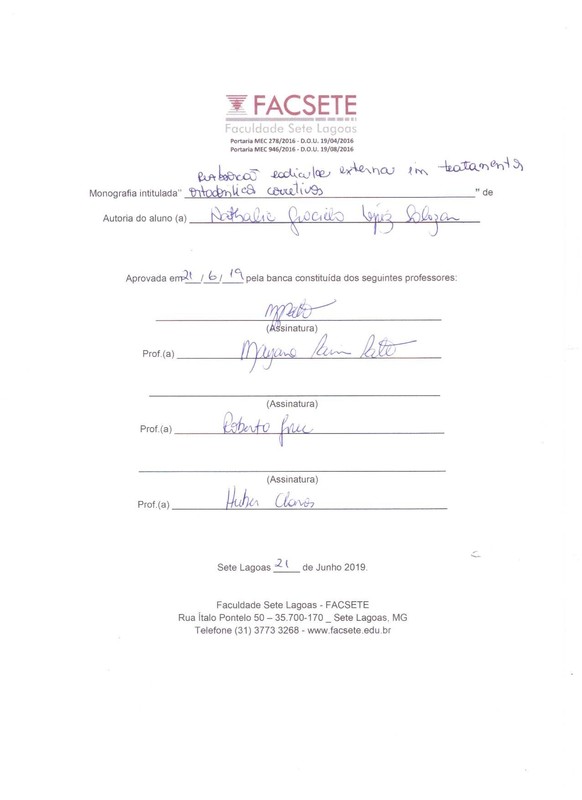 FACSETE
Faculdade Sete Lagoas
Portaria MEC 278/2016 - D.O.U. 19/04/2016
Portaria MEC 946/2016 - D.O.U. 19/08/2016
radicular externa em tratamentos
Monografia intitulada" ortodonticos corretivos " de
Autoria do aluno (a) Nathalie Graciela López Salazar
Aprovada em 21 / 6 / 19 pela banca constituída dos seguintes professores:
(Assinatura)
Prof.(a) Mayara
(Assinatura)
Prof.(a) Roberto
(Assinatura)
Prof.(a) Huber Claros
Sete Lagoas 21 de Junho 2019.
Faculdade Sete Lagoas - FACSETE
Rua Ítalo Pontelo 50 – 35.700-170 _ Sete Lagoas, MG
Telefone (31) 3773 3268 - www.facsete.edu.br